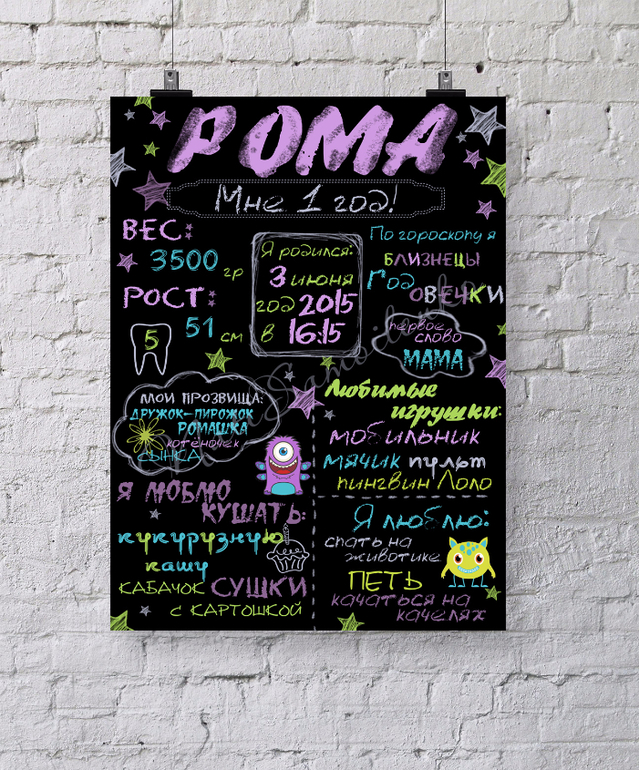 РОМА
Мне 1 год!
ВЕС:
3500 гр
РОСТ:
51 см
5
Я родился:
3 июня
год 2015
в 16:15
По гороскопу я
БЛИЗНЕЦЫ
Год
ОВЕЧКИ
первое
слово
МАМА
МОИ ПРОЗВИЩА:
ДРУЖОК-ПИРОЖОК
РОМАШКА
КОТЁНОЧЕК
СЫНСА
Любимые
игрушки:
мобильник
мячик пульт
пингвин Лоло
Я ЛЮБЛЮ
КУШАТЬ:
кукурузную
кашу
КАБАЧОК СУШКИ
С КАРТОШКОЙ
Я люблю:
спать на
животике
ПЕТЬ
качаться на
качелях